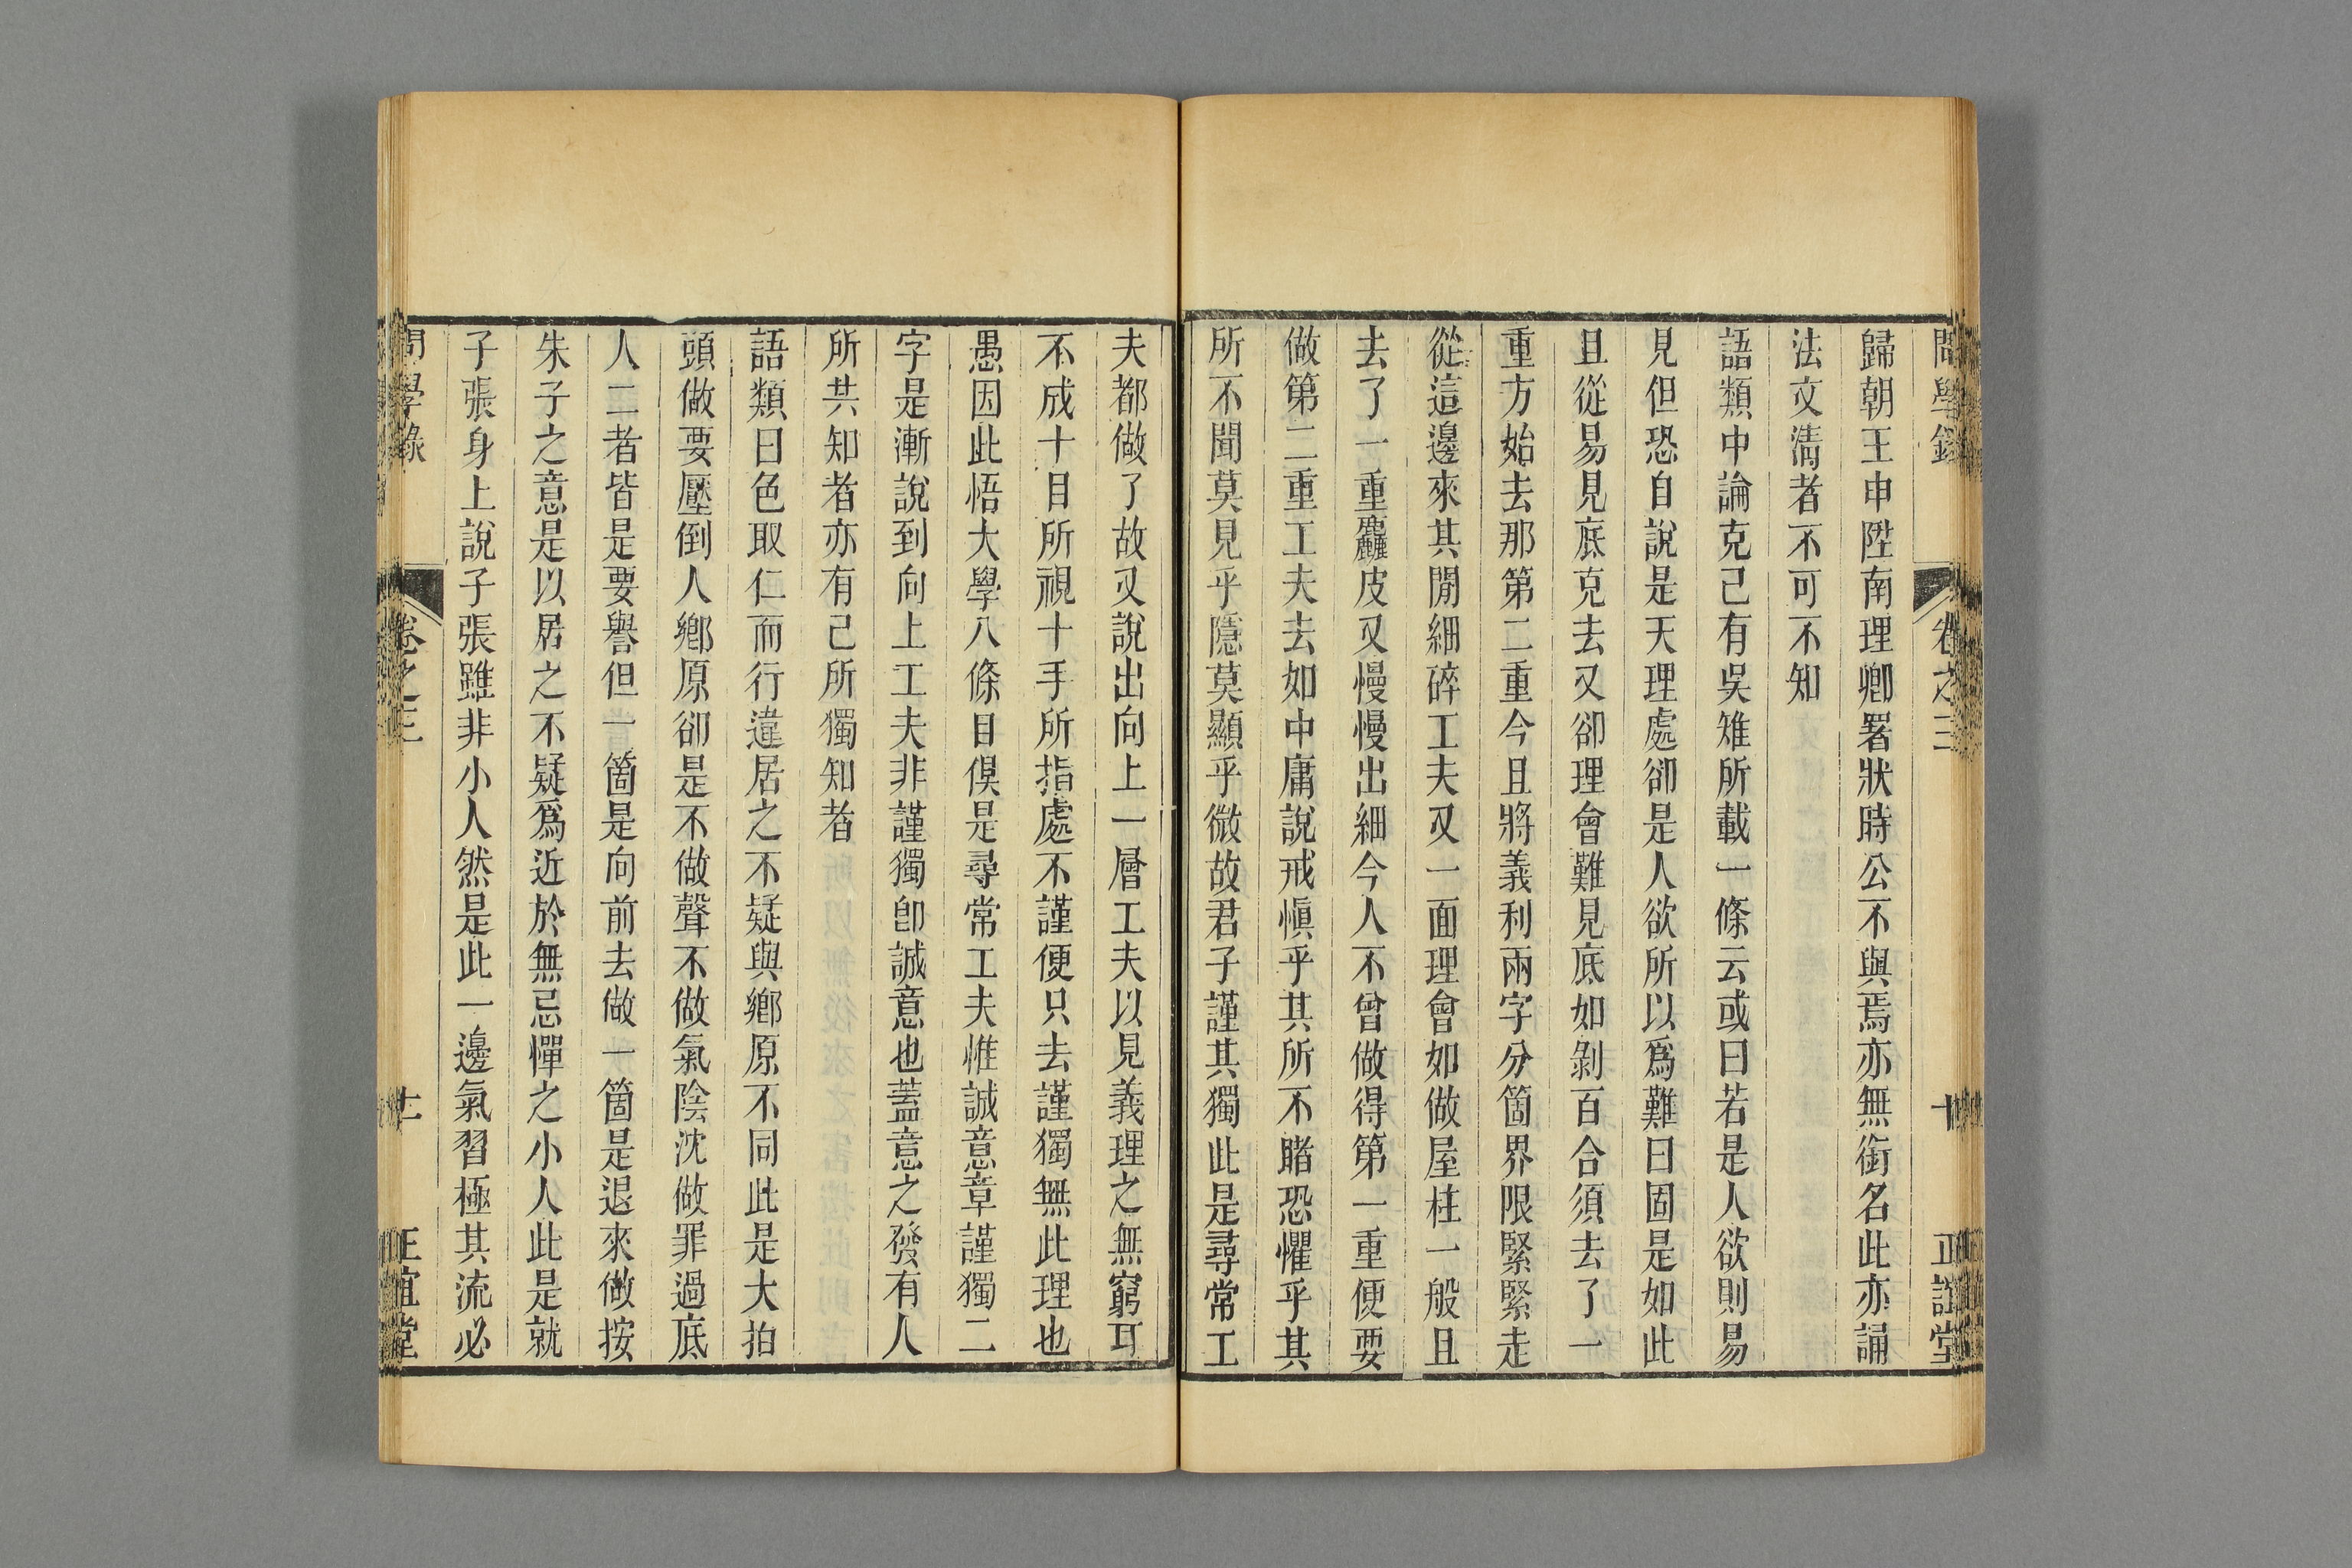 問學錄 卷之三 十 正誼堂
歸朝王申陞南理卿署狀時公不與焉亦無銜名此亦誦
法文清者不可不知
語類中論克己有吳雉所載一條云或曰若是人欲則易
見但恐自說是天理處卻是人欲所以爲難曰固是如此
且從易見底克去又卻理會難見底如剝百合須去了一
重方始去那第二重今且將義利兩字分箇界限緊緊走
從這邊來其閒細碎工夫又一面理會如做屋柱一般且
去了一重麤皮又慢慢出細今人不曾做得第一重便要
做第二重工夫去如中庸說戒愼乎其所不睹恐懼乎其
所不聞莫見乎隱莫顯乎微故君子謹其獨此是尋常工
夫都做了故又說出向上一層工夫以見義理之無窮耳
不成十目所視十手所指處不謹便只去謹獨無此理也
愚因此悟大學八條目俱是尋常工夫惟誠意章謹獨二
字是漸說到向上工夫非謹獨卽誠意也蓋意之發有人
所共知者亦有己所獨知者
語類曰色取仁而行違居之不疑與鄉原不同此是大拍
頭做要壓倒人鄉原卻是不做聲不做氣陰沈做罪過底
人二者皆是要譽但一箇是向前去做一箇是退來做按
朱子之意是以居之不疑爲近於無忌憚之小人此是就
子張身上說子張雖非小人然是此一邊氣習極其流必
問學錄 卷之三 十一 正誼堂